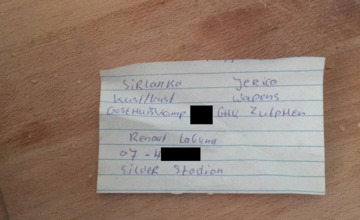 Sirlanka Jerico
kust/kust wapens
Oosthuiskamp GHV Zutphen
Renaut Laguna
07 - H
Silver Stadion